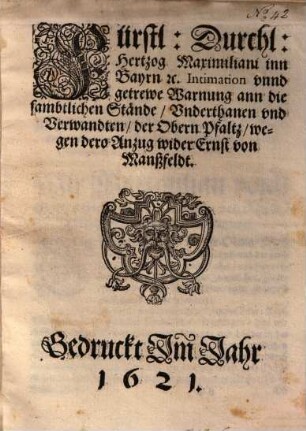 No. 42
Fürstl: Durchl:
Hertzog Maximiliani inn
Bayrn ꝛc. Intimation vnnd
getrewe Warnung ann die
sambtlichen Stände / Vnderthanen vnd
Verwandten / der Obern Pfaltz / we-
gen dero Anzug wider Ernst von
Manßfeldt.
Gedruckt Im Jahr
1621.